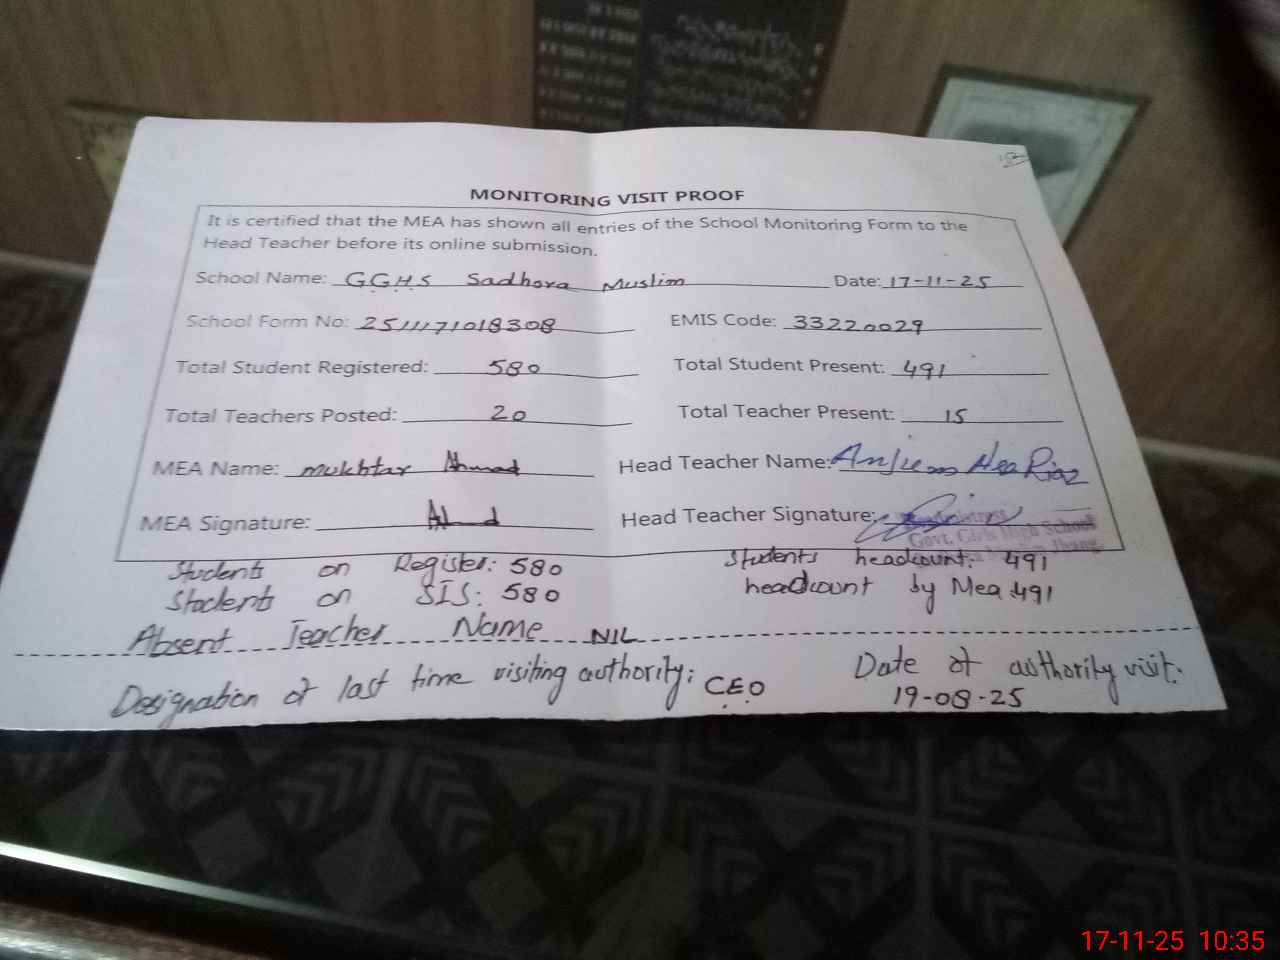 MONITORING VISIT PROOF
It is certified that the MEA has shown all entries of the School Monitoring Form to the
Head Teacher before its online submission.
School Name: GGHS Sadhora Muslim Date: 17-11-25
School Form No: 2511171018308 EMIS Code: 33220029
Total Student Registered: 580 Total Student Present: 491
Total Teachers Posted: 20 Total Teacher Present: 15
MEA Name: mukhtar Ahmad Head Teacher Name: Riaz
MEA Signature: Head Teacher Signature:
Govt. Girls High School
Jhang
Students on Register: 580 Students headcount: 491
Students on SIS: 580 headcount by Mea: 491
Absent Teacher Name NIL
Designation of last time visiting authority: CEO Date of authority visit:
19-08-25
17-11-25 10:35